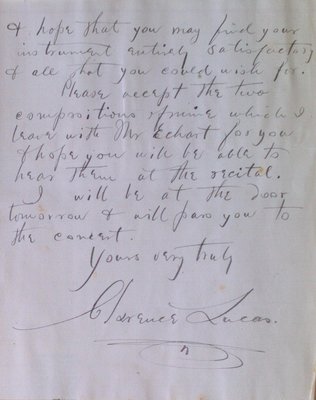 & hope that you may find your
instrument entirely satisfactory
& all that you could wish for.
Please accept the two
compositions of mine which I
leave with Mr Echart for you
& hope you will be able to
hear them at the recital.
I will be at the door
tomorrow & will pass you to
the concert.
Yours very truly
Clarence Lucas.